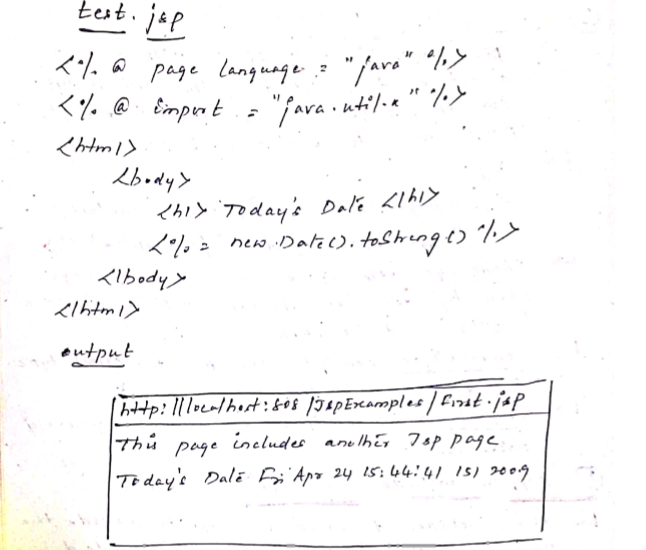 test.jsp
<% @ page language = "java" %>
<% @ import = "java.util.*" %>
<html>
<body>
<h1> Today's Date </h1>
<% = new Date().toString() %>
</body>
</html>
output
http://localhost:808/JspExamples/first.jsp
This page includes another Jsp page
Today's Date Fri Apr 24 15:44:41 IST 2009